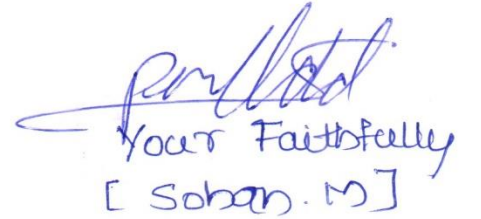 Your Faithfully
[ Soban. M ]